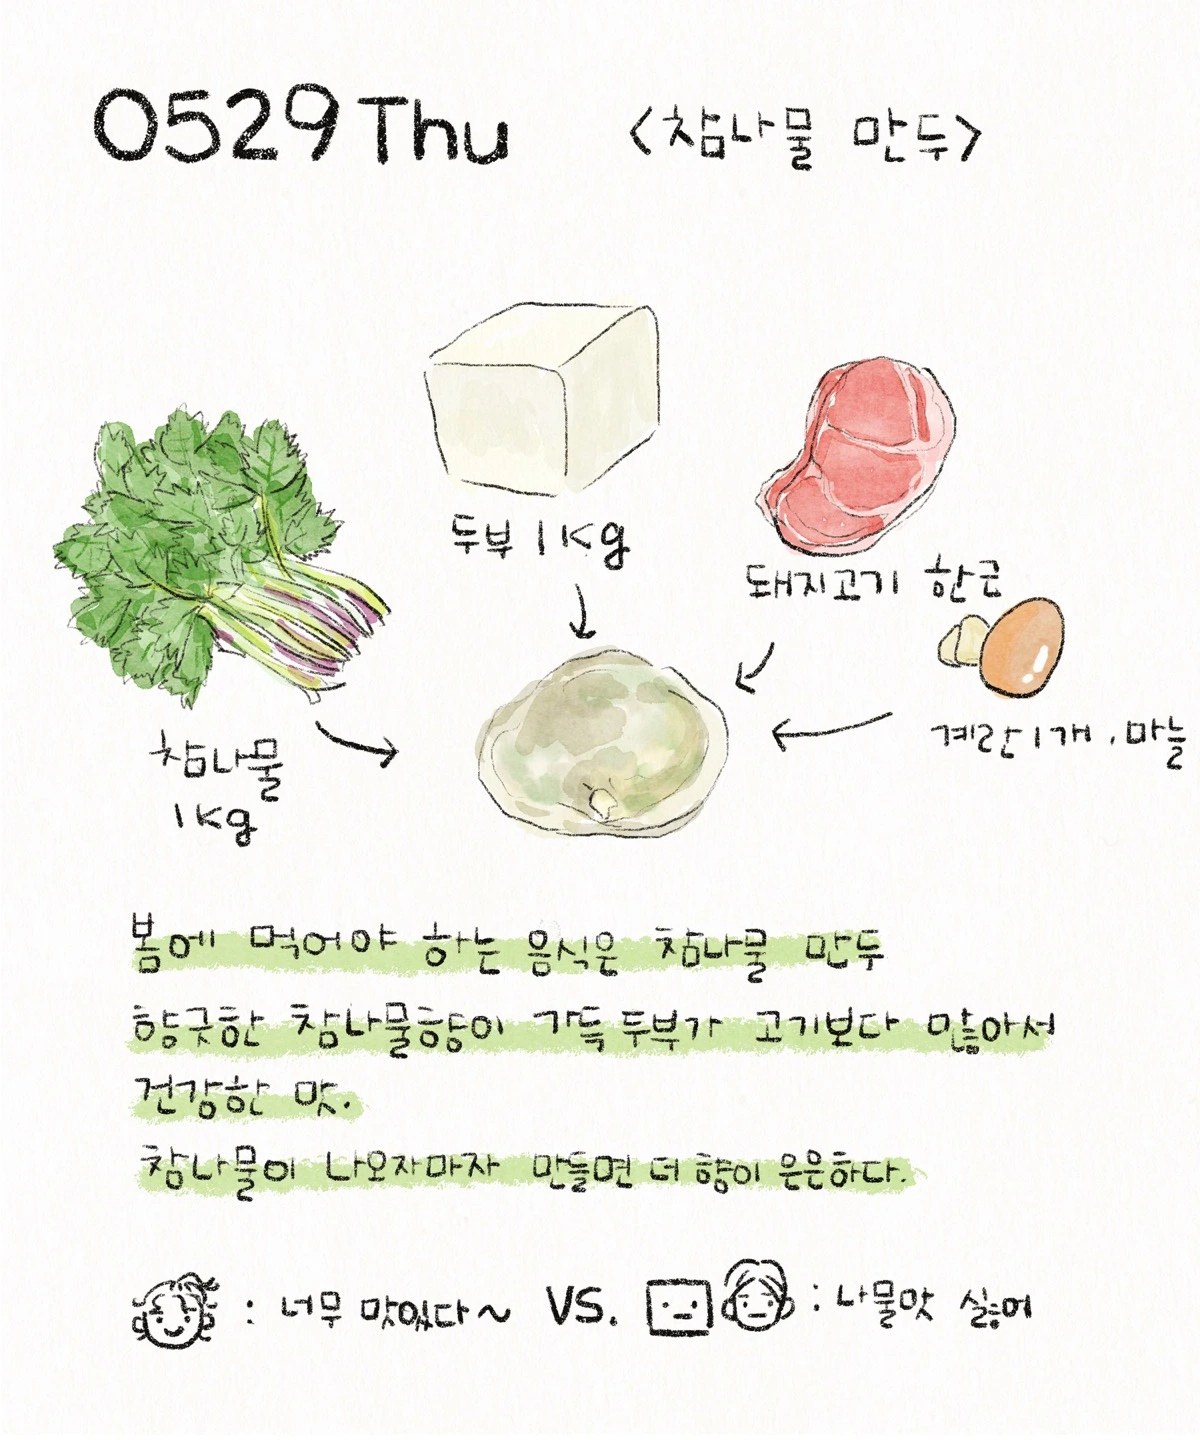 0529 Thu <참나물 만두>
두부 1kg
돼지고기 한근
계란 1개, 마늘
참나물
1kg
봄에 먹어야 하는 음식은 참나물 만두
향긋한 참나물향이 가득 두부가 고기보다 많아서
건강한 맛.
참나물이 나오자마자 만들면 더 향이 은은하다.
: 너무 맛있다~ VS. : 나물맛 싫어